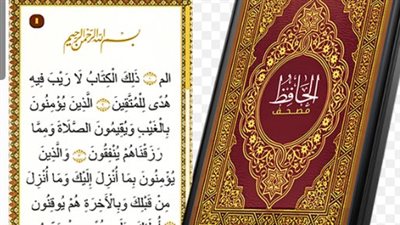 ١
بسم الله الرحمن الرحيم
الم ذَٰلِكَ الْكِتَابُ لَا رَيْبَ فِيهِ
هُدًى لِّلْمُتَّقِينَ الَّذِينَ يُؤْمِنُونَ
بِالْغَيْبِ وَيُقِيمُونَ الصَّلَاةَ وَمِمَّا
رَزَقْنَاهُمْ يُنفِقُونَ وَالَّذِينَ
يُؤْمِنُونَ بِمَا أُنزِلَ إِلَيْكَ وَمَا أُنزِلَ
مِن قَبْلِكَ وَبِالْآخِرَةِ هُمْ يُوقِنُونَ
الحافظ
مصحف